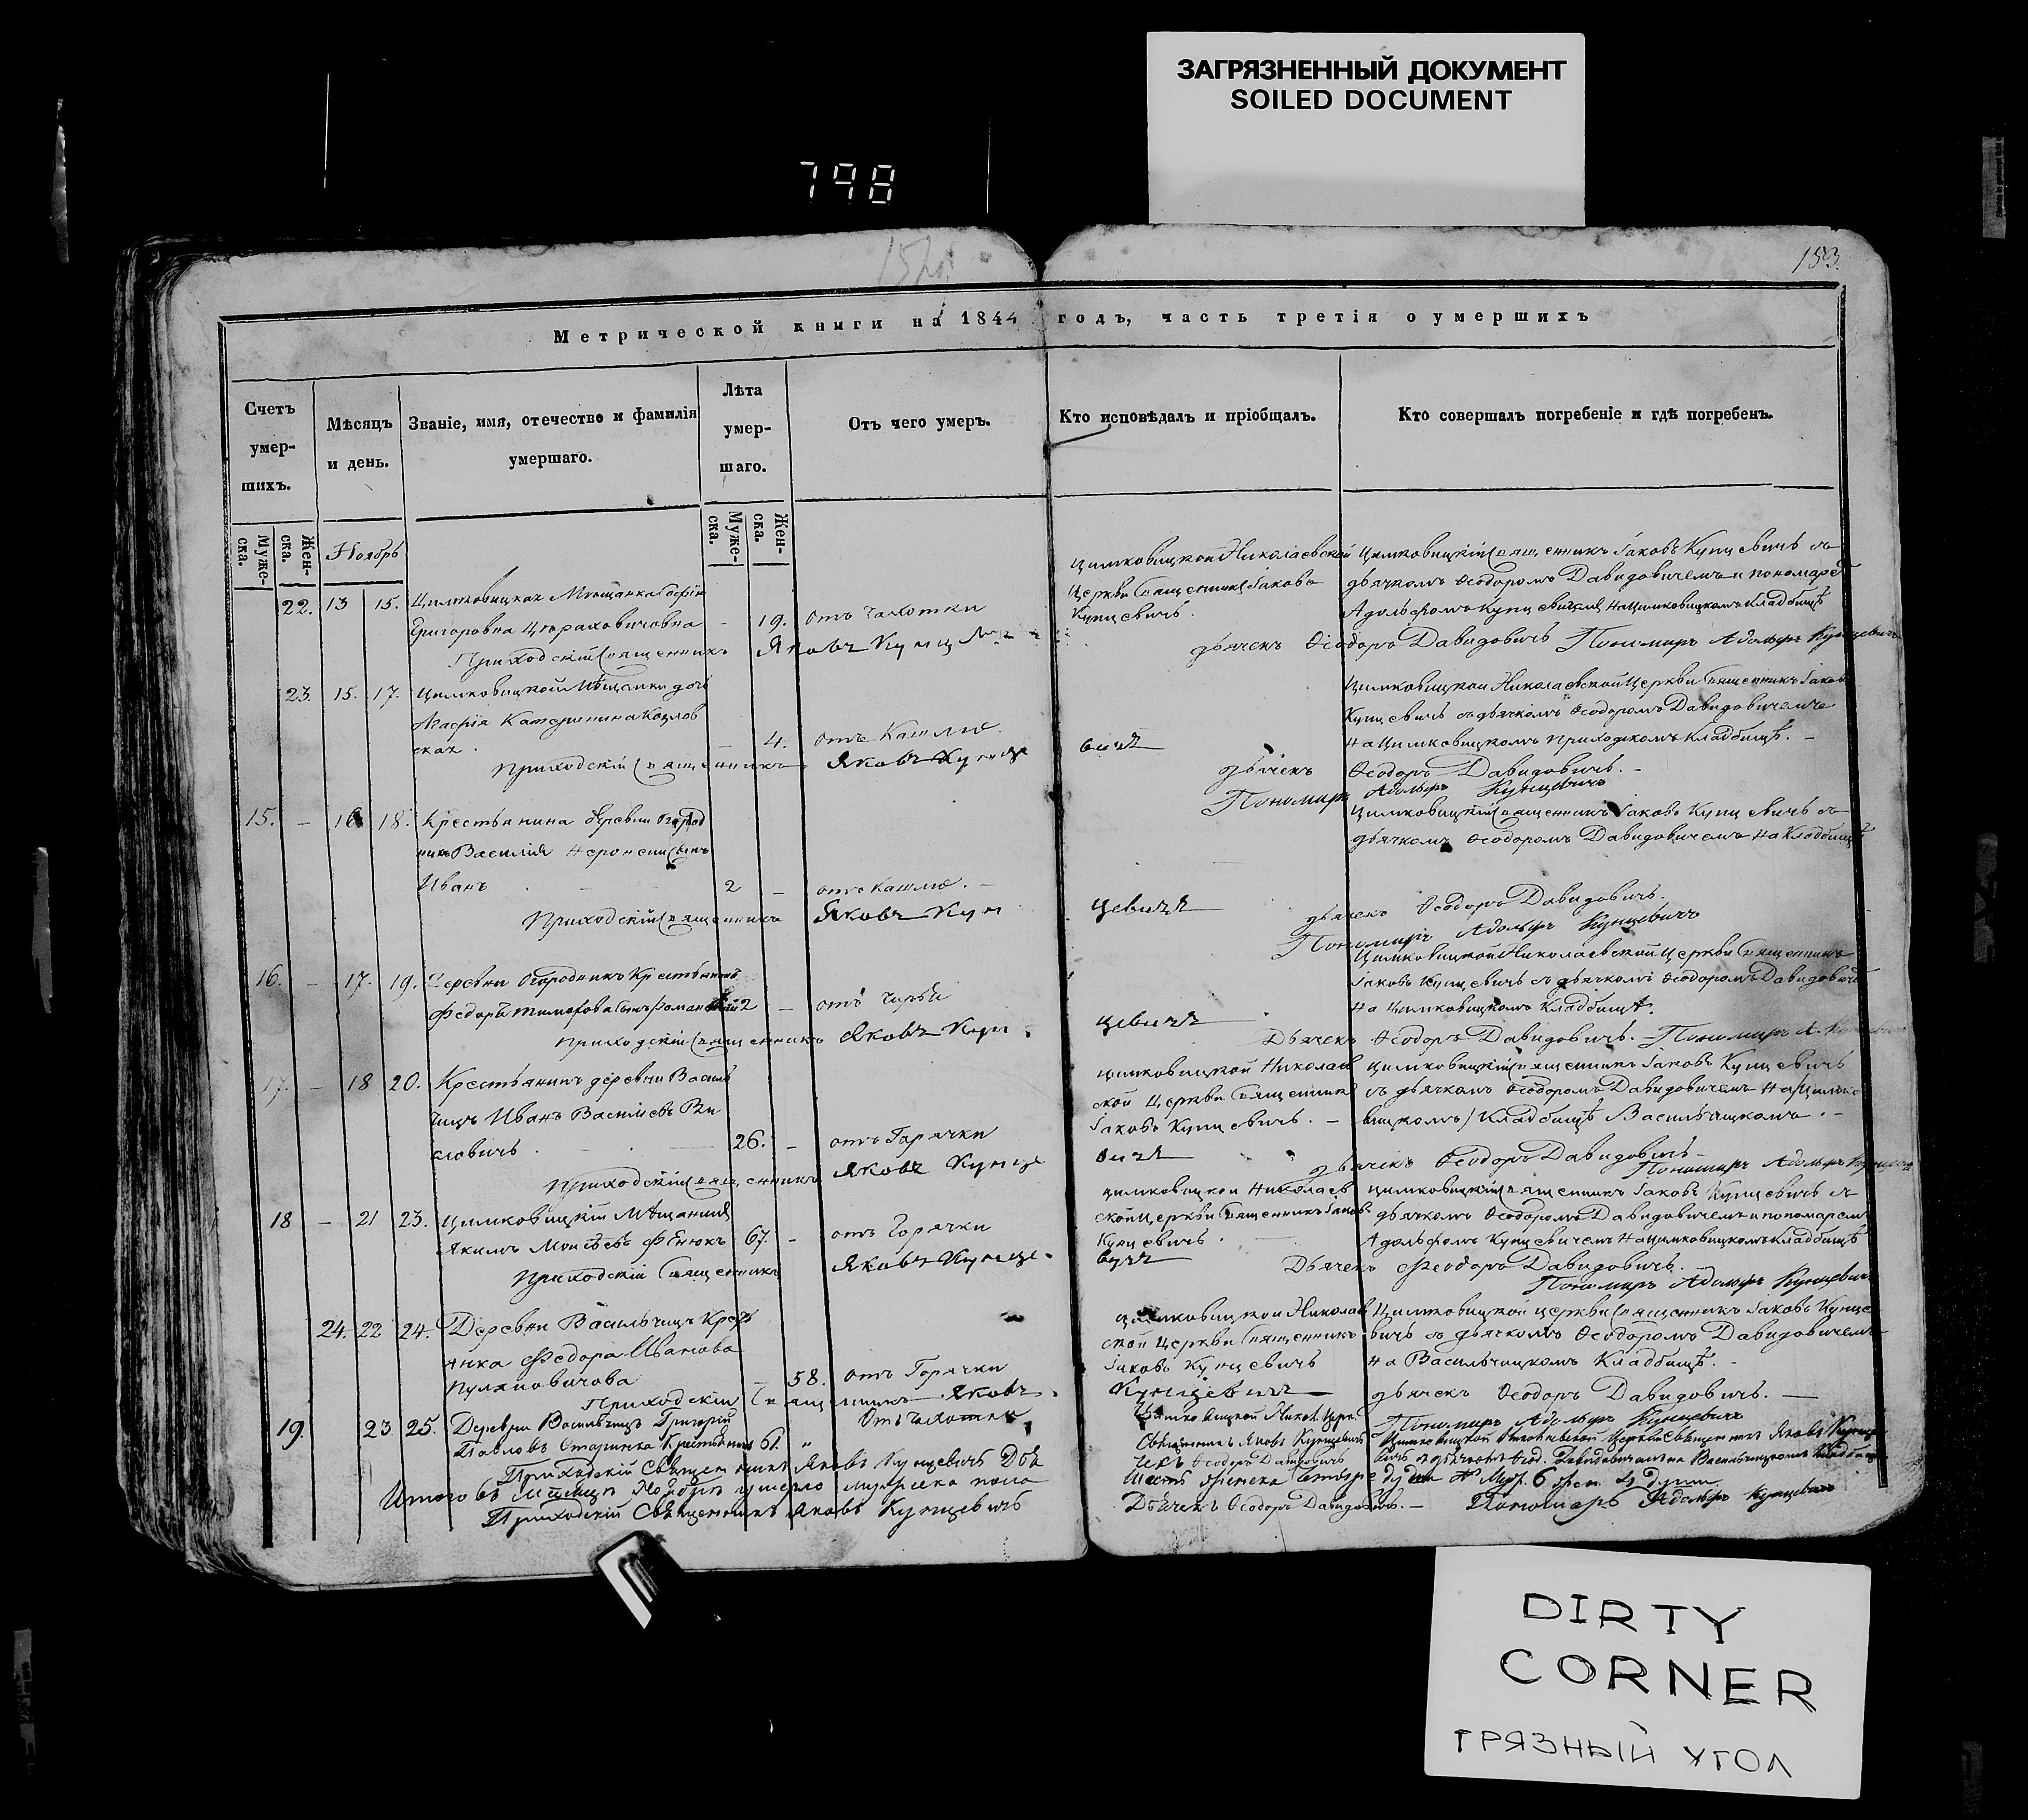 ЗАГРЯЗНЕННЫЙ ДОКУМЕНТ
SOILED DOCUMENT
798
153.
Метрической книги на 1844 годъ, часть третія о умершихъ
Счетъ умер-шихъ.
Мѣсяцъ и день.
Званіе, имя, отечество и фамилія умершаго.
Лѣта умер-шаго.
Отъ чего умеръ.
Кто исповѣдалъ и пріобщалъ.
Кто совершалъ погребеніе и гдѣ погребенъ.
Муже-ска.
Жен-ска.
Ноябрь
Муже-ска.
Жен-ска.
22. 13 15. Цимковицкая Мѣщанка Софія
Григоровна
– 19. отъ чахотки
Цимковицкой Николаевской
Церкви Священникъ Іаковъ
Купцевичъ.
Цимковицкій Священникъ Іаковъ Купцевичъ съ
дьячкомъ Ѳеодоромъ Давидовичемъ и пономаремъ
Адольфомъ Купцевичемъ на Цимковицкомъ Кладбищѣ
Приходскій Священникъ Яковъ
дьячекъ Ѳеодоръ Давидовичъ Пономарь Адольфъ Купцевичъ
23. 15. 17. Цимковицкой Мѣщанки дочь
Катерина Козлов
ская.
– 4. отъ Кашлю.
Цимковицкой Николаевской Церкви Священникъ Іаковъ
Купцевичъ съ дьячкомъ Ѳеодоромъ Давидовичемъ
на Цимковицкомъ приходскомъ Кладбищѣ. –
Приходскій Священникъ Яковъ Купце
вичъ
дьячекъ Ѳеодоръ Давидовичъ. –
Пономарь Адольфъ Купцевичъ
15. – 16 18. Крестьянина деревни Огород
никъ Василія сынъ
Иванъ
2 – отъ Кашлю. –
Цимковицкій Священникъ Іаковъ Купцевичъ съ
дьячкомъ Ѳеодоромъ Давидовичемъ на Кладбищѣ
Приходскій Священникъ Яковъ Куп
цевичъ
дьячекъ Ѳеодоръ Давидовичъ.
Пономарь Адольфъ Купцевичъ
16. – 17. 19. Деревни Огородникъ Крестьянинъ
Тимофѣева сынъ
2 – отъ
Цимковицкой Николаевской Церкви Священникъ
Іаковъ Купцевичъ съ дьячкомъ Ѳеодоромъ Давидович
на Цимковицкомъ Кладбищѣ.
Приходскій Священникъ Яковъ Куп
цевичъ
Дьячекъ Ѳеодоръ Давидовичъ. Пономарь А.
17. – 18 20. Крестьянинъ деревни Василь
чицъ Иванъ Васильевъ Ви
словичъ.
26. – отъ Горячки
Цимковицкой Николаев
ской Церкви Священник
Іаковъ Купцевичъ. –
Цимковицкій Священникъ Іаковъ Купцевичъ
съ дьячкомъ Ѳеодоромъ Давидовичемъ на
Кладбищѣ Васильчицкомъ. –
Приходскій Священникъ Яковъ Купце
вичъ
дьячекъ Ѳеодоръ Давидовичъ –
Пономарь Адольфъ
18 – 21 23. Цимковицкій Мѣщанинъ
Якимъ Моисѣевъ Фенюкъ
67. – отъ Горячки
Цимковицкой Николаев
ской Церкви Священникъ Іаковъ
Купцевичъ.
Цимковицкій Священникъ Іаковъ Купцевичъ съ
дьячкомъ Ѳеодоромъ Давидовичемъ и пономаремъ
Адольфомъ Купцевичемъ на Цимковицкомъ Кладбищѣ
Приходскій Священникъ Яковъ Купце
вичъ
Дьячекъ Феодоръ Давидовичъ.
Пономарь Адольфъ Купцевичъ
24. 22 24. Деревни Васильчицъ Крест
янка Федора Иванова
58. отъ Горячки
Цимковицкой Николаев
ской Церкви Священникъ
Іаковъ Купцевичъ
Цимковицкой церкви Священникъ Іаковъ Купце
вичъ съ дьячкомъ Ѳеодоромъ Давидовичемъ
на Васильчицкомъ Кладбищѣ.
Приходскій Священникъ Яковъ
Купцевичъ
дьячекъ Ѳеодоръ Давидовичъ. –
Пономарь Адольфъ Купцевичъ
19. 23. 25. Деревни Васильчицъ Григорій
Павловъ Крестьянинъ 61. „
Отъ чахотки
Священникъ Яковъ Купцевичъ
Приходскій Священникъ Яковъ Купцевичъ Дья
чекъ Ѳеодоръ Давидовичъ
Итого въ Мѣсяцѣ Ноябрѣ умерло мужеска пола
Приходскій Священникъ Яковъ Купцевичъ
Дьячекъ Ѳеодоръ Давидовичъ. – Пономарь Адольфъ Купцевичъ
DIRTY
CORNER
ГРЯЗНЫЙ УГОЛ